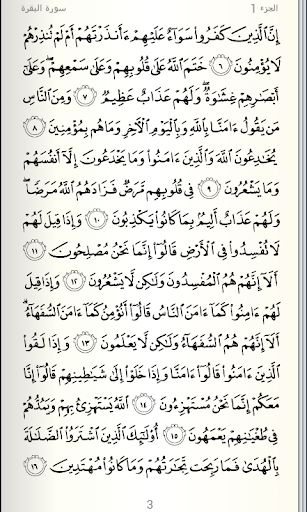 سورة البقرة الجزء 1
إِنَّ ٱلَّذِينَ كَفَرُوا۟ سَوَآءٌ عَلَيْهِمْ ءَأَنذَرْتَهُمْ أَمْ لَمْ تُنذِرْهُمْ
لَا يُؤْمِنُونَ ٦ خَتَمَ ٱللَّهُ عَلَىٰ قُلُوبِهِمْ وَعَلَىٰ سَمْعِهِمْ ۖ وَعَلَىٰٓ
أَبْصَٰرِهِمْ غِشَٰوَةٌ ۖ وَلَهُمْ عَذَابٌ عَظِيمٌ ٧ وَمِنَ ٱلنَّاسِ
مَن يَقُولُ ءَامَنَّا بِٱللَّهِ وَبِٱلْيَوْمِ ٱلْءَاخِرِ وَمَا هُم بِمُؤْمِنِينَ ٨
يُخَٰدِعُونَ ٱللَّهَ وَٱلَّذِينَ ءَامَنُوا۟ وَمَا يَخْدَعُونَ إِلَّآ أَنفُسَهُمْ
وَمَا يَشْعُرُونَ ٩ فِى قُلُوبِهِم مَّرَضٌ فَزَادَهُمُ ٱللَّهُ مَرَضًا ۖ
وَلَهُمْ عَذَابٌ أَلِيمٌۢ بِمَا كَانُوا۟ يَكْذِبُونَ ١٠ وَإِذَا قِيلَ لَهُمْ
لَا تُفْسِدُوا۟ فِى ٱلْأَرْضِ قَالُوٓا۟ إِنَّمَا نَحْنُ مُصْلِحُونَ
١١ أَلَآ إِنَّهُمْ هُمُ ٱلْمُفْسِدُونَ وَلَٰكِن لَّا يَشْعُرُونَ ١٢ وَإِذَا قِيلَ
لَهُمْ ءَامِنُوا۟ كَمَآ ءَامَنَ ٱلنَّاسُ قَالُوٓا۟ أَنُؤْمِنُ كَمَآ ءَامَنَ ٱلسُّفَهَآءُ ۗ
أَلَآ إِنَّهُمْ هُمُ ٱلسُّفَهَآءُ وَلَٰكِن لَّا يَعْلَمُونَ ١٣ وَإِذَا لَقُوا۟
ٱلَّذِينَ ءَامَنُوا۟ قَالُوٓا۟ ءَامَنَّا وَإِذَا خَلَوْا۟ إِلَىٰ شَيَٰطِينِهِمْ قَالُوٓا۟ إِنَّا
مَعَكُمْ إِنَّمَا نَحْنُ مُسْتَهْزِءُونَ ١٤ ٱللَّهُ يَسْتَهْزِئُ بِهِمْ وَيَمُدُّهُمْ
فِى طُغْيَٰنِهِمْ يَعْمَهُونَ ١٥ أُو۟لَٰٓئِكَ ٱلَّذِينَ ٱشْتَرَوُا۟ ٱلضَّلَٰلَةَ
بِٱلْهُدَىٰ فَمَا رَبِحَت تِّجَٰرَتُهُمْ وَمَا كَانُوا۟ مُهْتَدِينَ ١٦
3